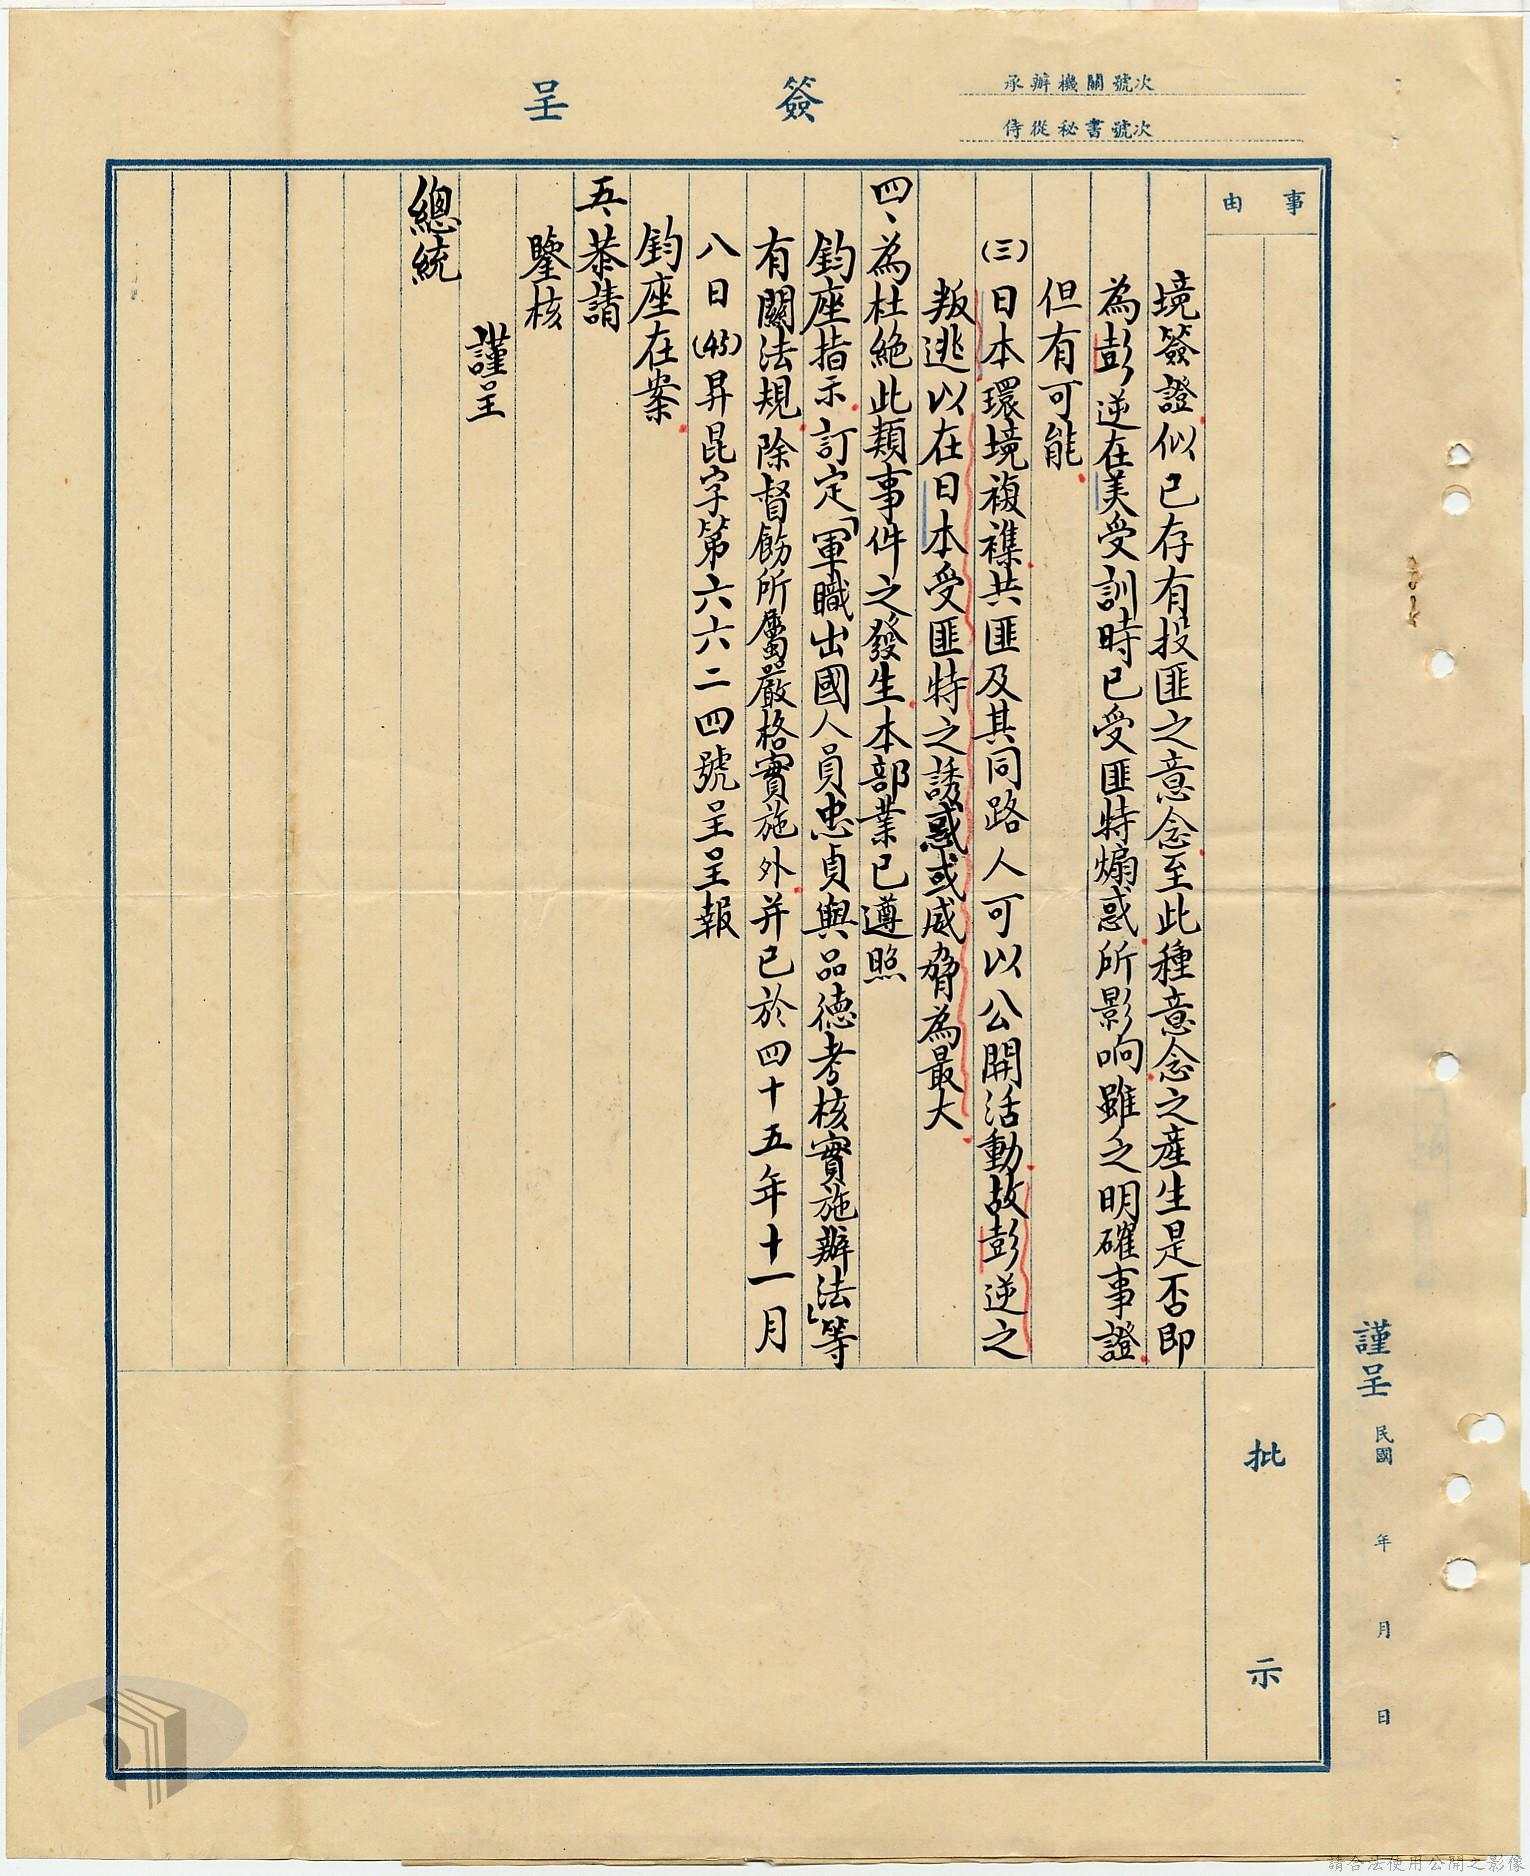 簽呈
承辦機關號次
侍從秘書號次
事由
境簽證似已存有投匪之意念至此種意念之產生是否即
為彭逆在美受訓時已受匪特煽惑所影响雖乏明確事證
但有可能
(三)日本環境複襍共匪及其同路人可以公開活動故彭逆之
叛逃以在日本受匪特之誘惑或威脅為最大
四、為杜絕此類事件之發生本部業已遵照
鈞座指示訂定「軍職出國人員忠貞與品德考核實施辦法」等
有關法規除督飭所屬嚴格實施外并已於四十五年十一月
八日(45)昇昆字第六六二四號呈呈報
鈞座在案
五、恭請
鑒核
謹呈
總統
批示
謹呈
民國 年 月 日
請合法使用公開之影像